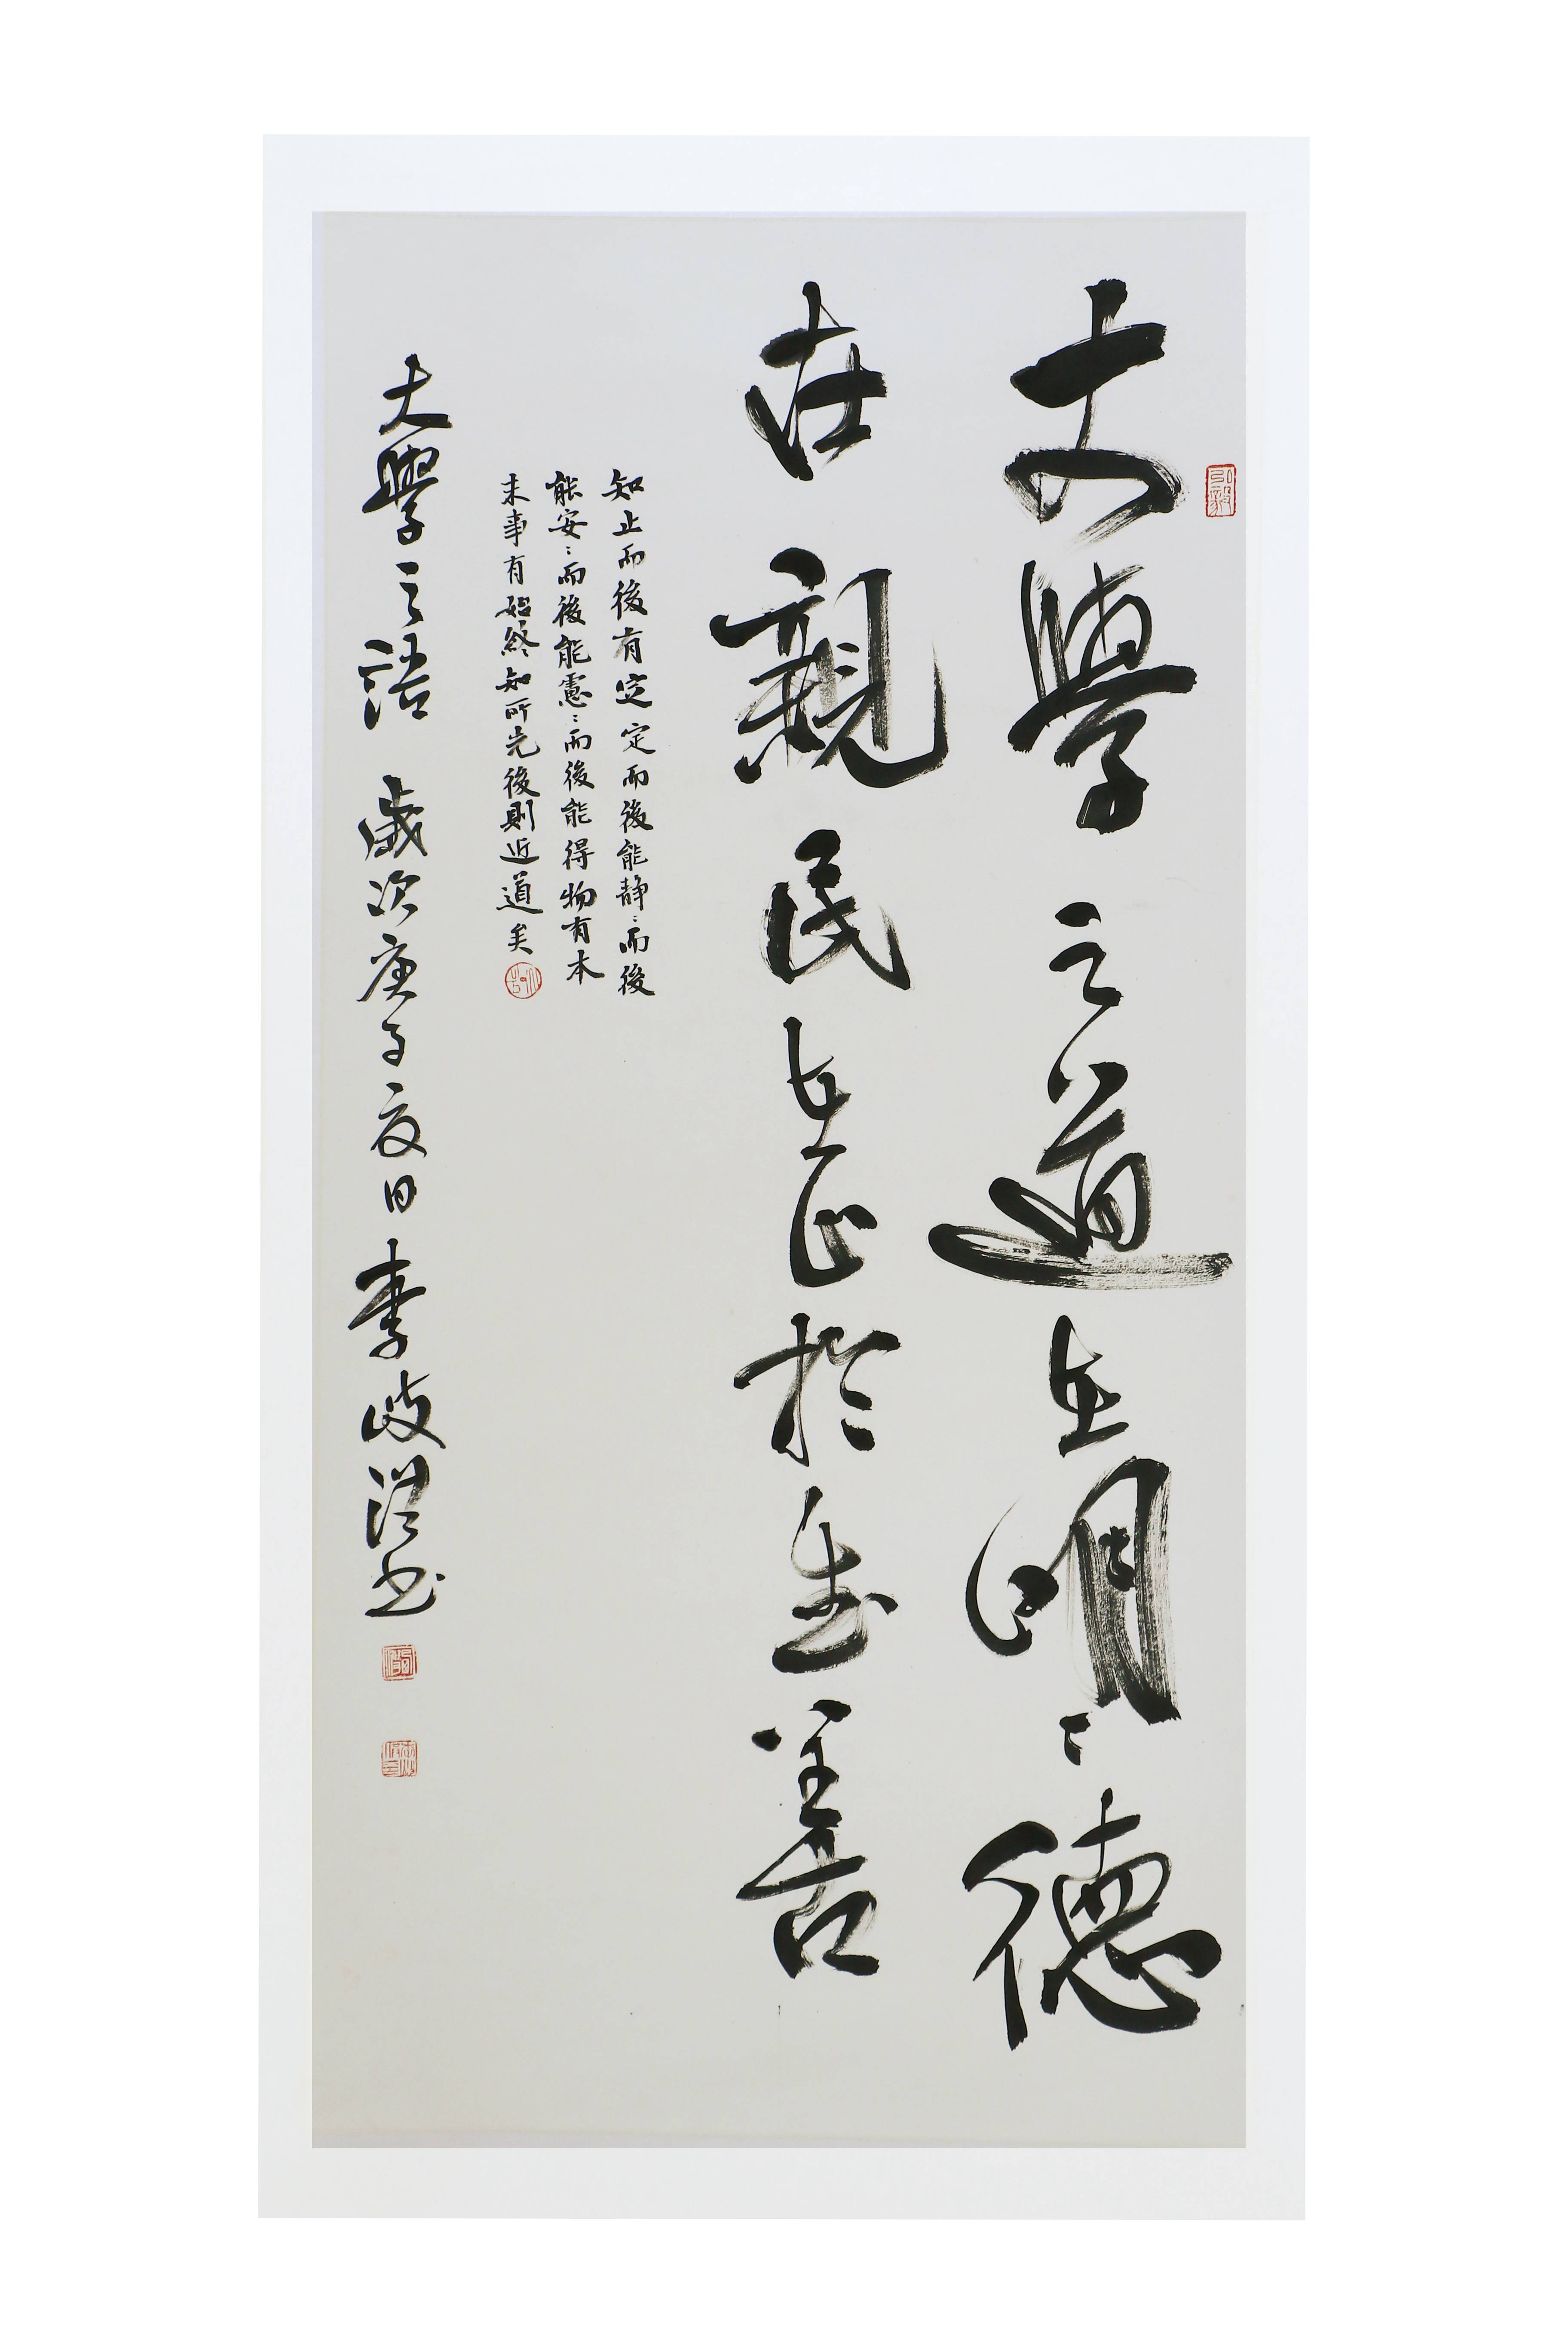 大學之道在明〻德
在親民在止於至善
知止而後有定定而後能静〻而後
能安〻而後能慮〻而後能得物有本
末事有始終知所先後則近道矣
大學之語 歲次庚子夏日 李岐书